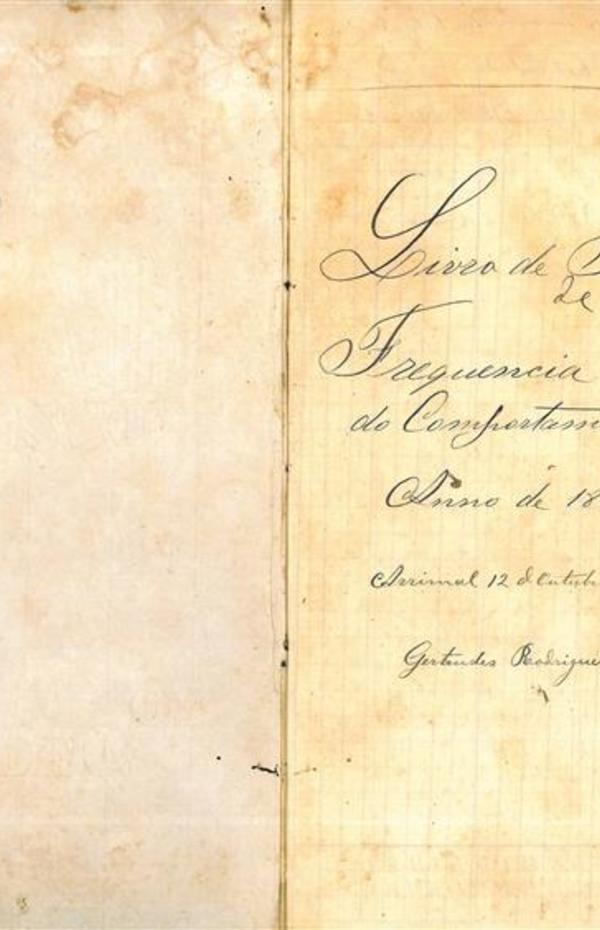 Livro de
de
Frequencia
do Comportam
Anno de 18
Arrimal 12 d'Outub
Gertrudes Rodrigue